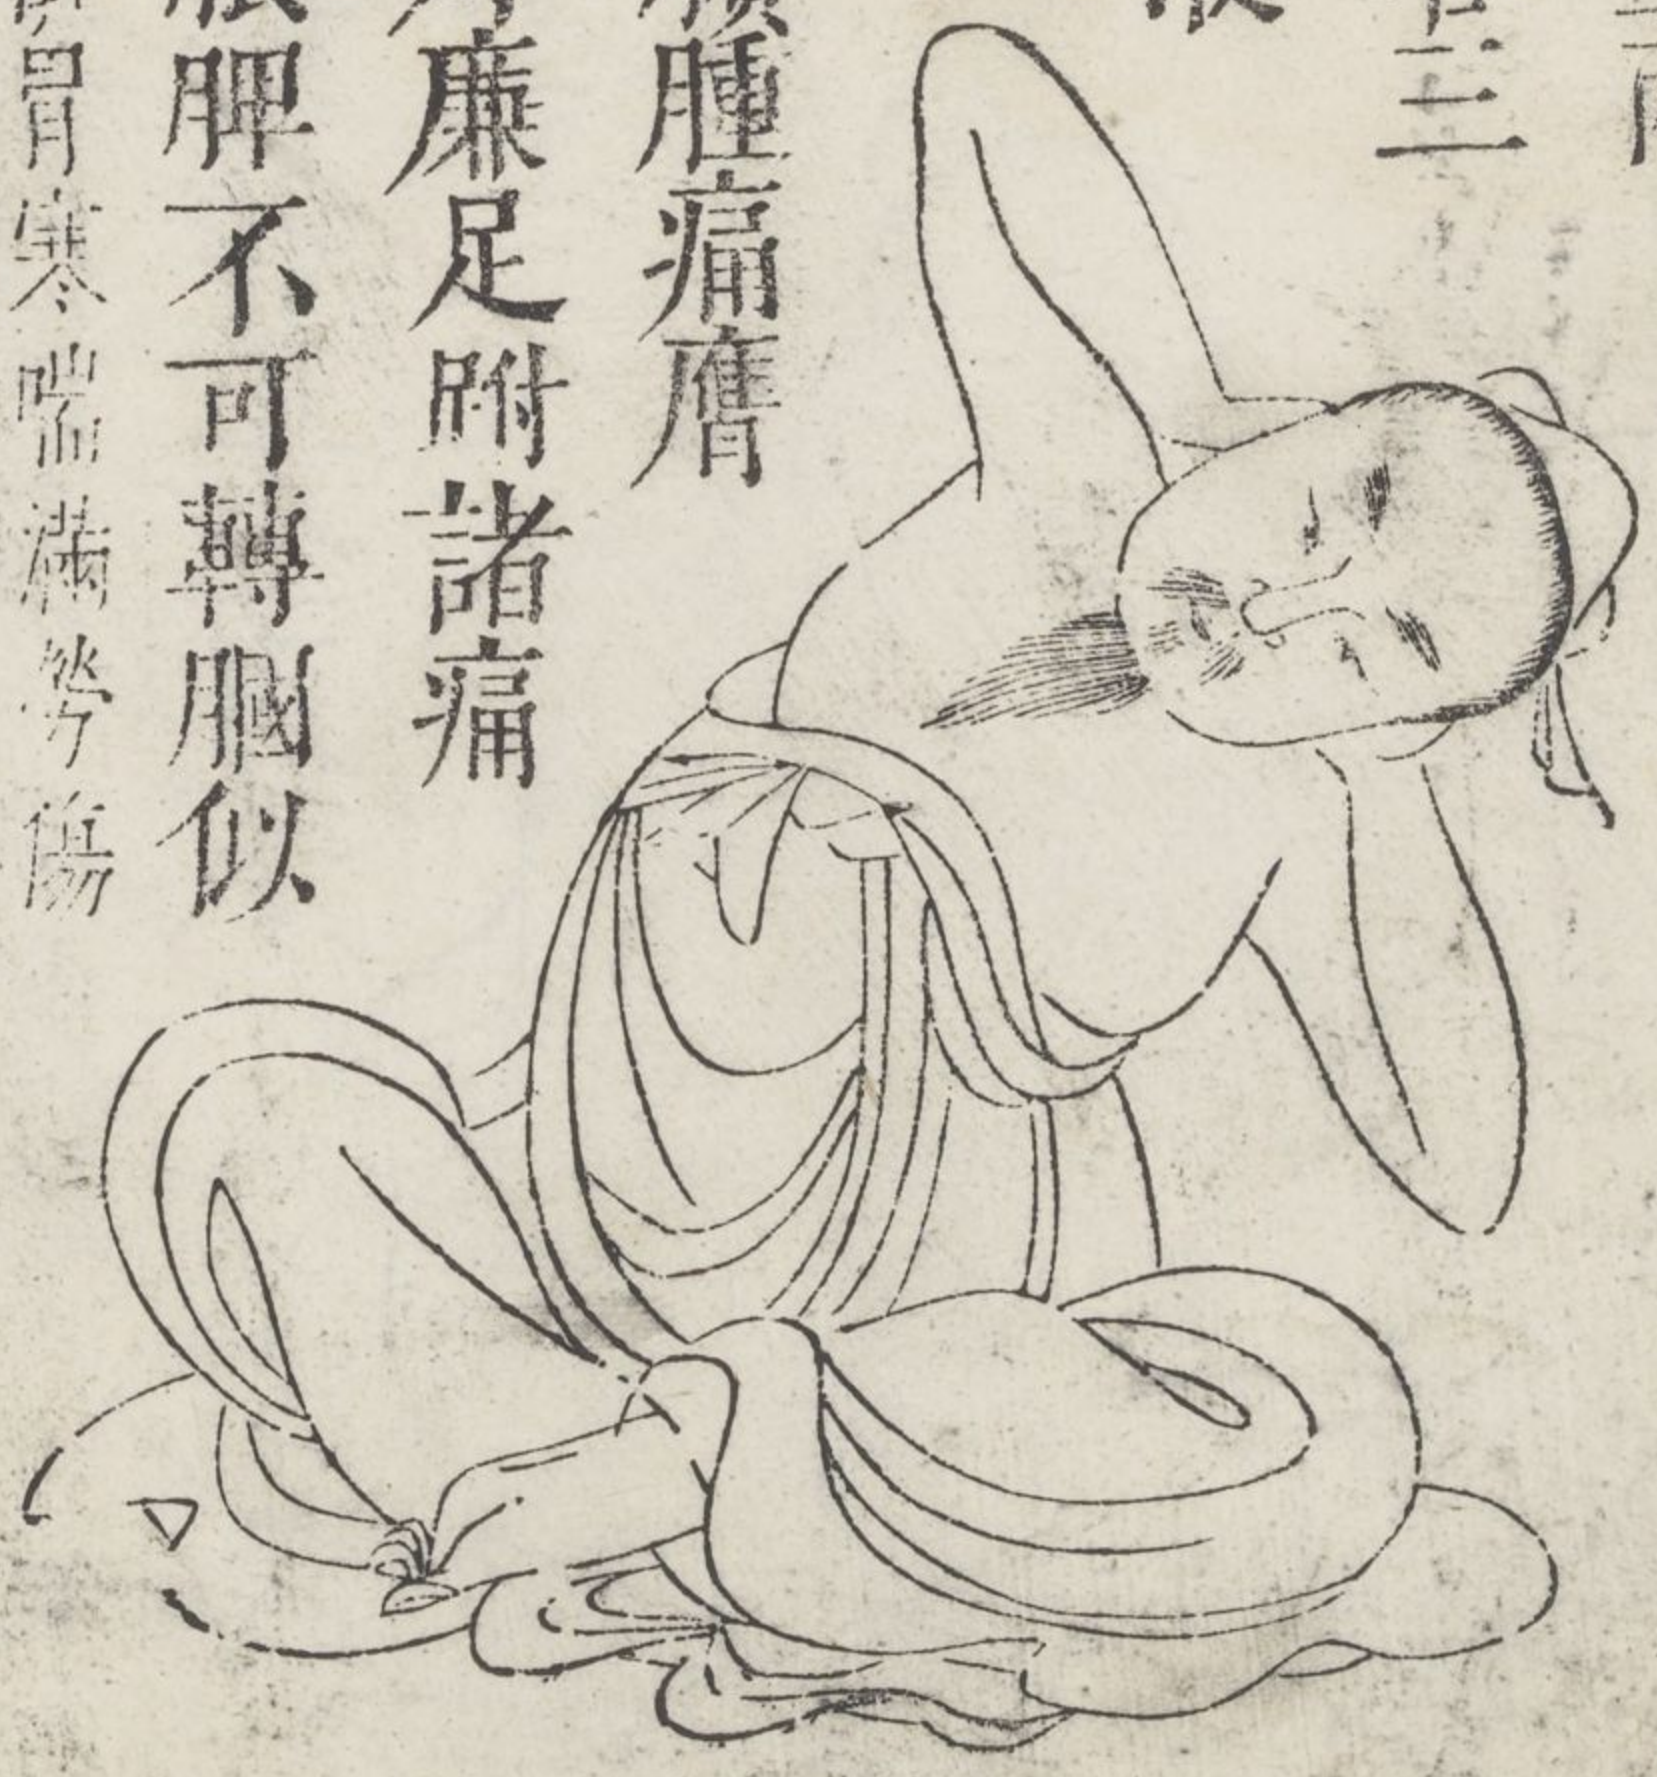 三
腫痛膺
廉足跗諸痛
脾不可轉膕似
胃寒喘滿勞傷